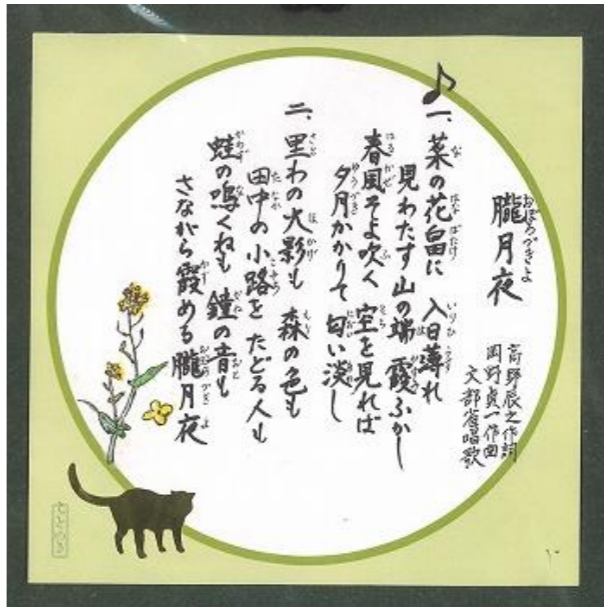 朧月夜
高野辰之作詞
岡野貞一作曲
文部省唱歌
一、菜の花畠に 入日薄れ
見わたす山の端 霞ふかし
春風そよ吹く 空を見れば
夕月かかりて 匂い淡し
二、里わの火影も 森の色も
田中の小路を たどる人も
蛙の鳴くねも 鐘の音も
さながら霞める 朧月夜